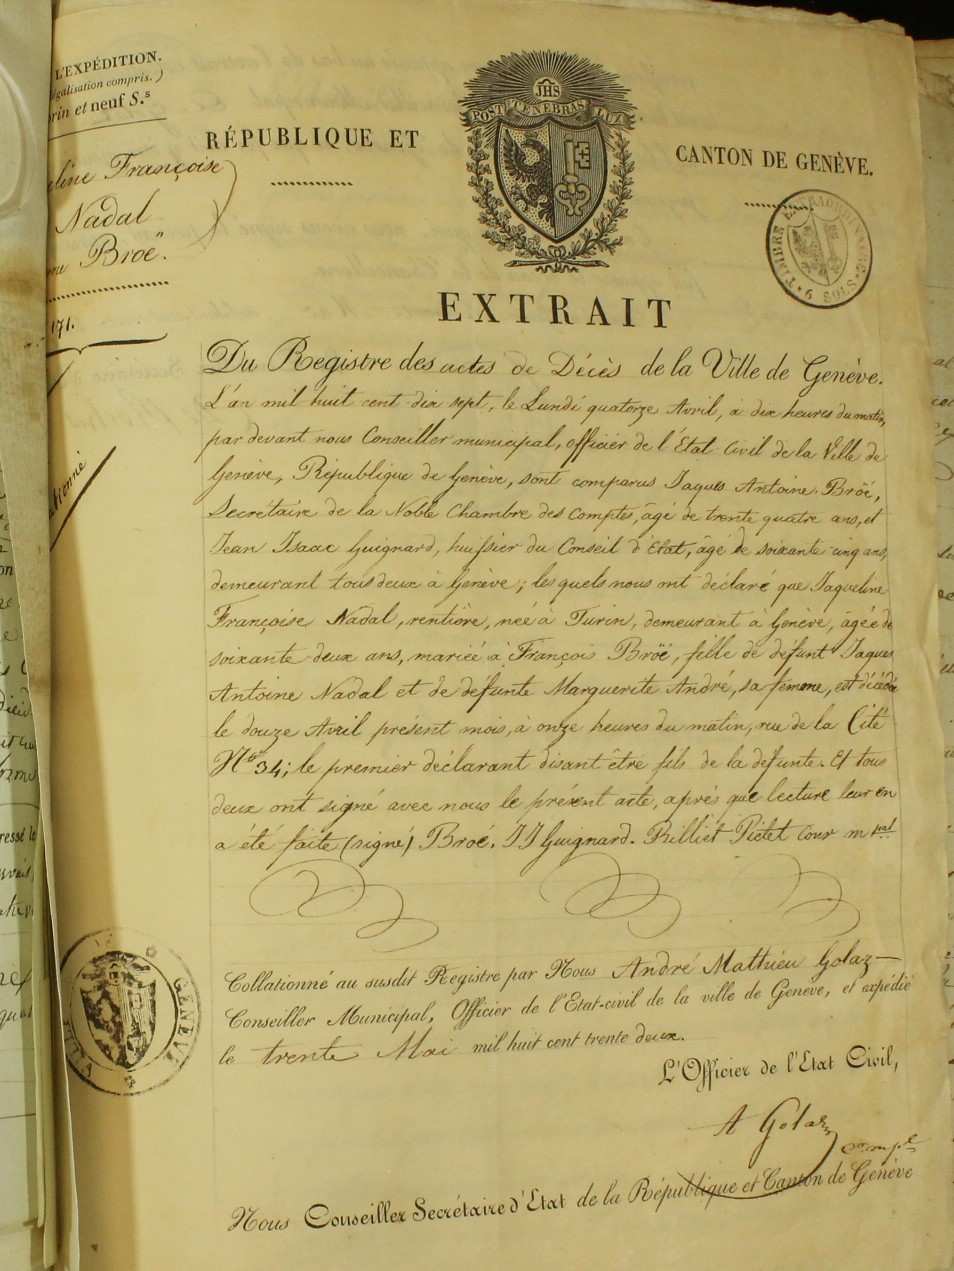 L'EXPÉDITION.
galisation compris.)
rin et neuf S.s
RÉPUBLIQUE ET
JHS
POST TENEBRAS LUX
CANTON DE GENÈVE.
eline Françoise
Nadal
me Broë.
171.
TIMBRE EXTRAORDINAIRE
6 SOLS
EXTRAIT
Du Registre des actes de Décès de la Ville de Genève.
L'an mil huit cent dix sept, le Lundi quatorze Avril, à dix heures du matin,
par devant nous Conseiller municipal, officier de l'État Civil de la Ville de
Genève, République de Genève, sont comparus Jaques Antoine Bröé,
Secrétaire de la Noble Chambre des Comptes, âgé de trente quatre ans, et
Jean Isaac Guignard, huissier du Conseil d'État, âgé de soixante cinq ans,
demeurant tous deux à Genève; lesquels nous ont déclaré que Jaqueline
Françoise Nadal, rentière, née à Turin, demeurant à Genève, âgée de
soixante deux ans, mariée à François Bröé, fille de défunt Jaques
Antoine Nadal et de défunte Marguerite André, sa femme, est décédée
le douze Avril présent mois, à onze heures du matin, rue de la Cité
No 34; le premier déclarant disant être fils de la défunte. Et tous
deux ont signé avec nous le présent acte, après que lecture leur en
a été faite (signé) Broé. JJ Guignard. Rilliet Pictet Conr mpal
ationné
Collationné au susdit Registre par Nous André Mathieu Golaz
Conseiller Municipal, Officier de l'État-civil de la ville de Genève, et expédié
le trente Mai mil huit cent trente deux.
VILLE DE GENÈVE
L'Officier de l'État Civil,
A Golaz
Nous Conseiller Secrétaire d'État de la République et Canton de Genève